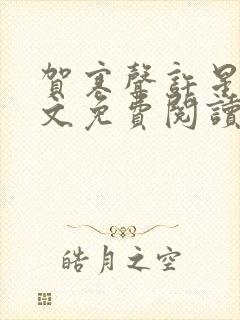 賀寒聲許星
文免費閱讀
皓月之空